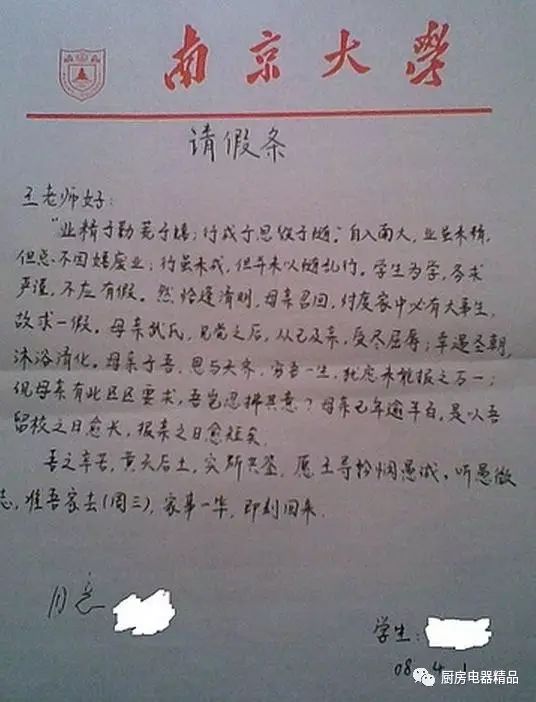 南京大學
请假条
王老师好：
“业精于勤荒于嬉；行成于思毁于随。”自入南大，业虽未精，
但总不因嬉废业；行虽未成，但并未以随乱行。学生为学，务求
严谨，不应有假。然恰逢清明，母亲召回，忖度家中必有大事生，
故求一假。母亲武氏，见党之后，从己及亲，受尽屈辱；幸遇圣朝，
沐浴清化。母亲于吾，恩与天齐，穷吾一生，犹恐未能报之万一；
况母亲有此区区要求，吾岂忍拂其意？母亲已年逾半百，是以吾
留校之日愈长，报亲之日愈短矣。
吾之辛苦，黄天后土，实所共鉴，愿王导矜悯愚诚，听愚微
志，准吾家去(周三)，家事一毕，即刻回来。
同意
学生：
08. 4. 1
厨房电器精品